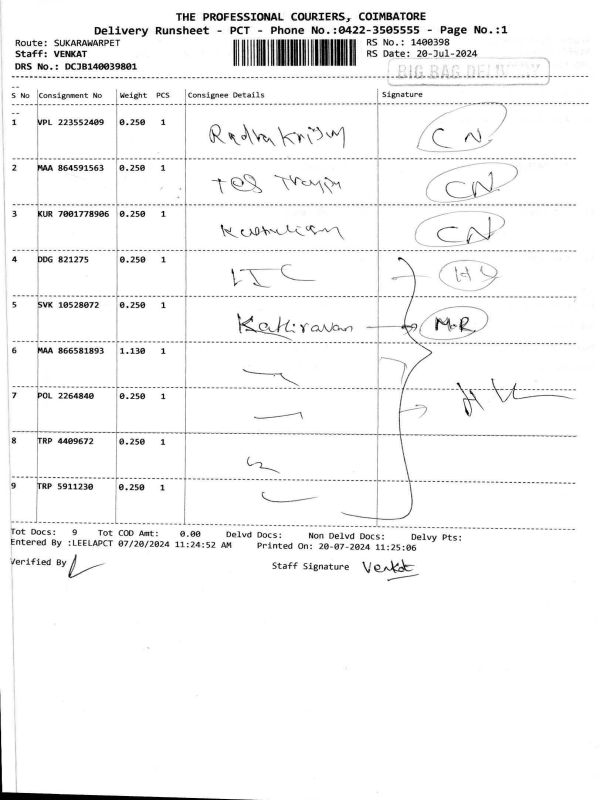 THE PROFESSIONAL COURIERS, COIMBATORE
Delivery Runsheet - PCT - Phone No.:0422-3505555 - Page No.:1
Route: SUKARAWARPET RS No.: 1400398
Staff: VENKAT RS Date: 20-Jul-2024
DRS No.: DCJB140039801
BIG BAG DELIVERY
S No Consignment No Weight PCS Consignee Details Signature
1 VPL 223552409 0.250 1 CN
2 MAA 864591563 0.250 1 CN
3 KUR 7001778906 0.250 1 CN
4 DDG 821275 0.250 1 LIC
5 SVK 10528072 0.250 1 Kathiravan M.R
6 MAA 866581893 1.130 1
7 POL 2264840 0.250 1
8 TRP 4409672 0.250 1
9 TRP 5911230 0.250 1
Tot Docs: 9 Tot COD Amt: 0.00 Delvd Docs: Non Delvd Docs: Delvy Pts:
Entered By :LEELAPCT 07/20/2024 11:24:52 AM Printed On: 20-07-2024 11:25:06
Verified By Staff Signature Venkat